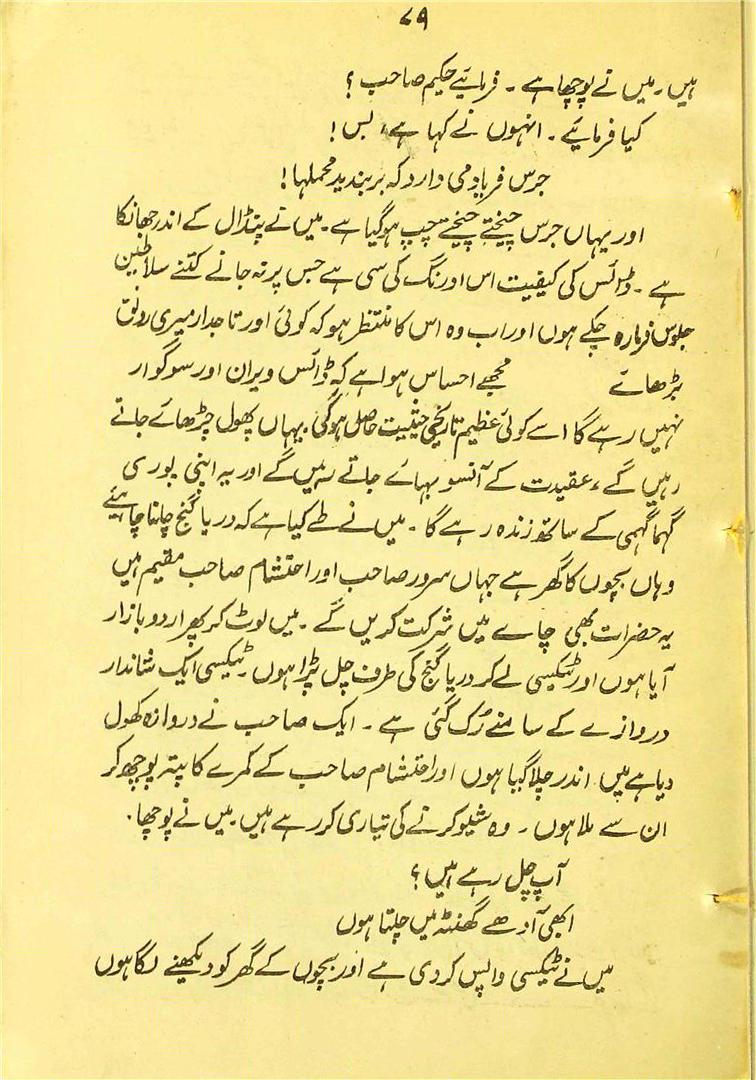 ۷۹
ہیں۔ میں نے پوچھا ہے۔ فرمائیے حکیم صاحب؟
کیا فرمائیے۔ انہوں نے کہا ہے، بس!
جرس فریاد می دارد کہ بربندید محملہا!
اور یہاں جرس چیختے چیختے چپ ہوگیا ہے۔ میں نے پنڈال کے اندر جھانکا
ہے۔ ڈائس کی کیفیت اس اورنگ کی سی ہے جس پر نہ جانے کتنے سلاطین
جلوس فرما رہ چکے ہوں اور اب وہ اس کا منتظر ہو کہ کوئی اور تاجدار میری رونق
بڑھائے مجھے احساس ہوا ہے کہ ڈائس ویران اور سوگوار
نہیں رہے گا اسے کوئی عظیم تاریخی حیثیت حاصل ہوگی۔ یہاں پھول چڑھائے جاتے
رہیں گے، عقیدت کے آنسو بہائے جاتے رہیں گے اور یہ اپنی پوری
گہما گہمی کے ساتھ زندہ رہے گا۔ میں نے طے کیا ہے کہ دریا گنج چلنا چاہئے
وہاں بچوں کا گھر ہے جہاں سرور صاحب اور احتشام صاحب مقیم ہیں
یہ حضرات بھی چائے میں شرکت کریں گے۔ میں لوٹ کر پھر اردو بازار
آیا ہوں اور ٹیکسی لے کر دریا گنج کی طرف چل پڑا ہوں۔ ٹیکسی ایک شاندار
دروازے کے سامنے رُک گئی ہے۔ ایک صاحب نے دروازہ کھول
دیا ہے میں اندر چلا گیا ہوں اور احتشام صاحب کے کمرے کا پتہ پوچھ کر
ان سے ملا ہوں۔ وہ شیو کرنے کی تیاری کر رہے ہیں۔ میں نے پوچھا۔
آپ چل رہے ہیں؟
ابھی آدھے گھنٹہ میں چلتا ہوں
میں نے ٹیکسی واپس کر دی ہے اور بچوں کے گھر کو دیکھنے لگا ہوں